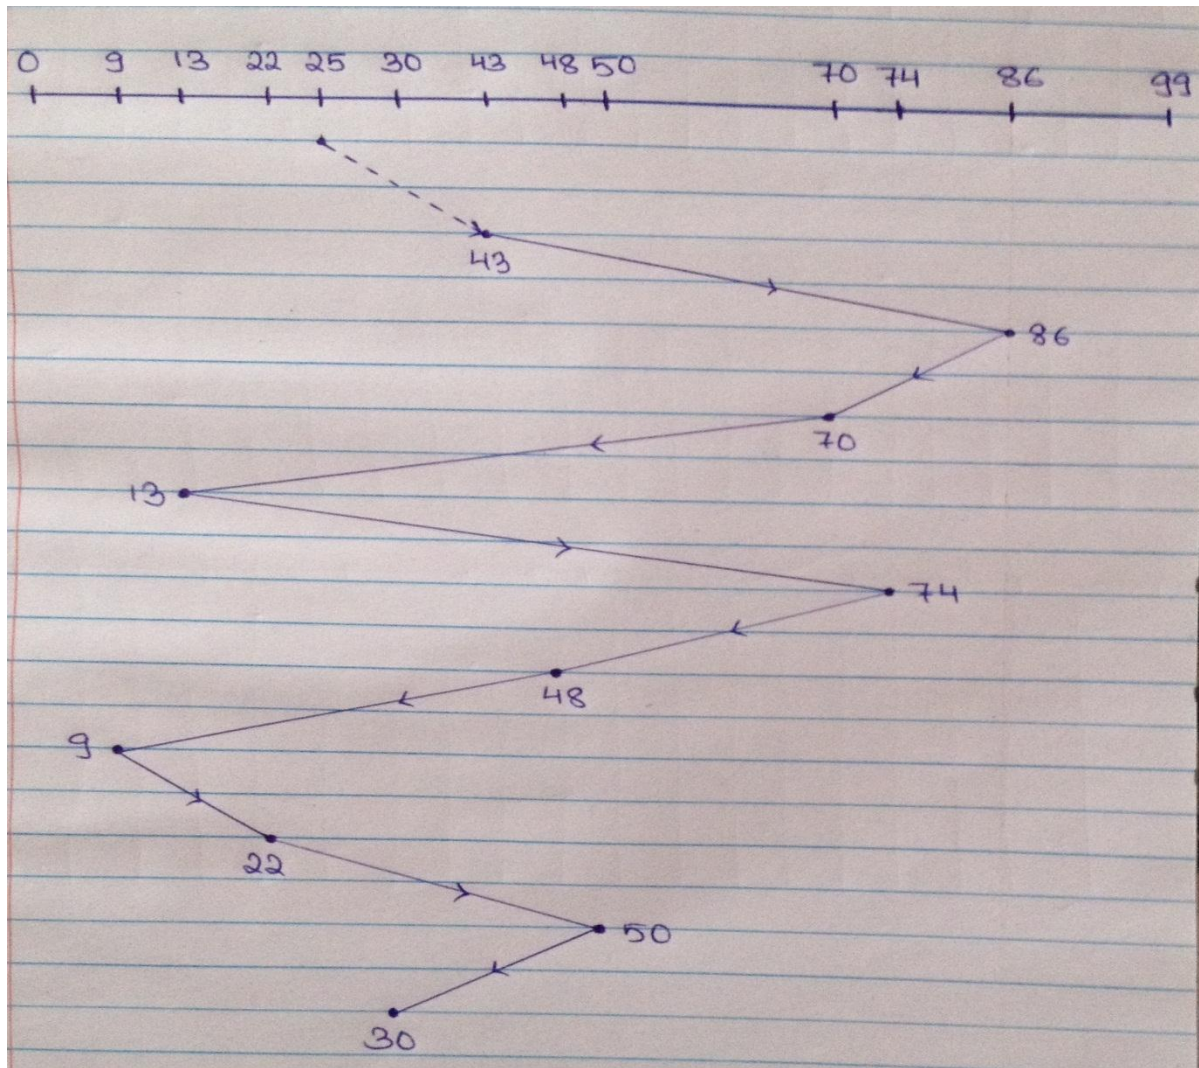 0 9 13 22 25 30 43 48 50 70 74 86 99
43
86
70
13
74
48
9
22
50
30